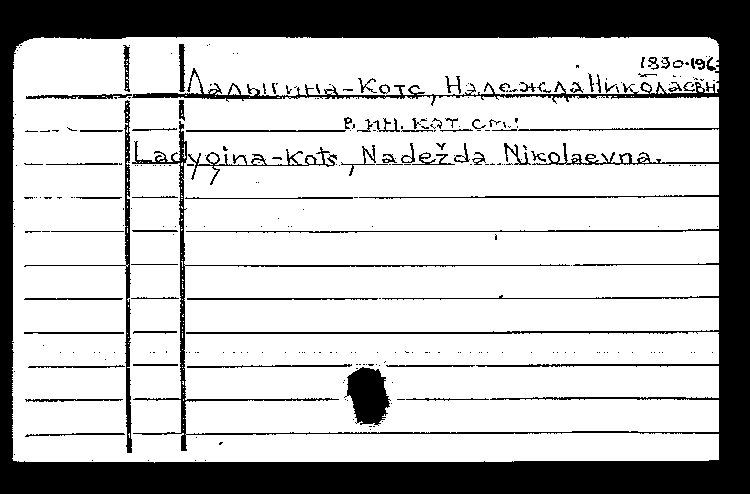 1890-1963
Ладыгина-Котс, Надежда Николаевна
в ин. кат. см.:
Ladygina-Kots, Nadežda Nikolaevna.